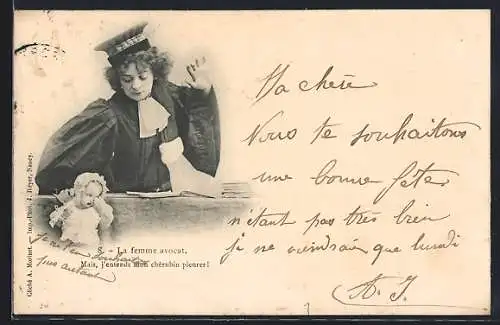 Ma chère
Nous te souhaitons
une bonne fête
n'étant pas très bien
je ne viendrai que lundi
A. J.
8. - La femme avocat.
Mais, j'entends mon chérubin pleurer!
souhaiter
autant
Cliché A. Morinet. — Imp.-Phot. J. Royer, Nancy.